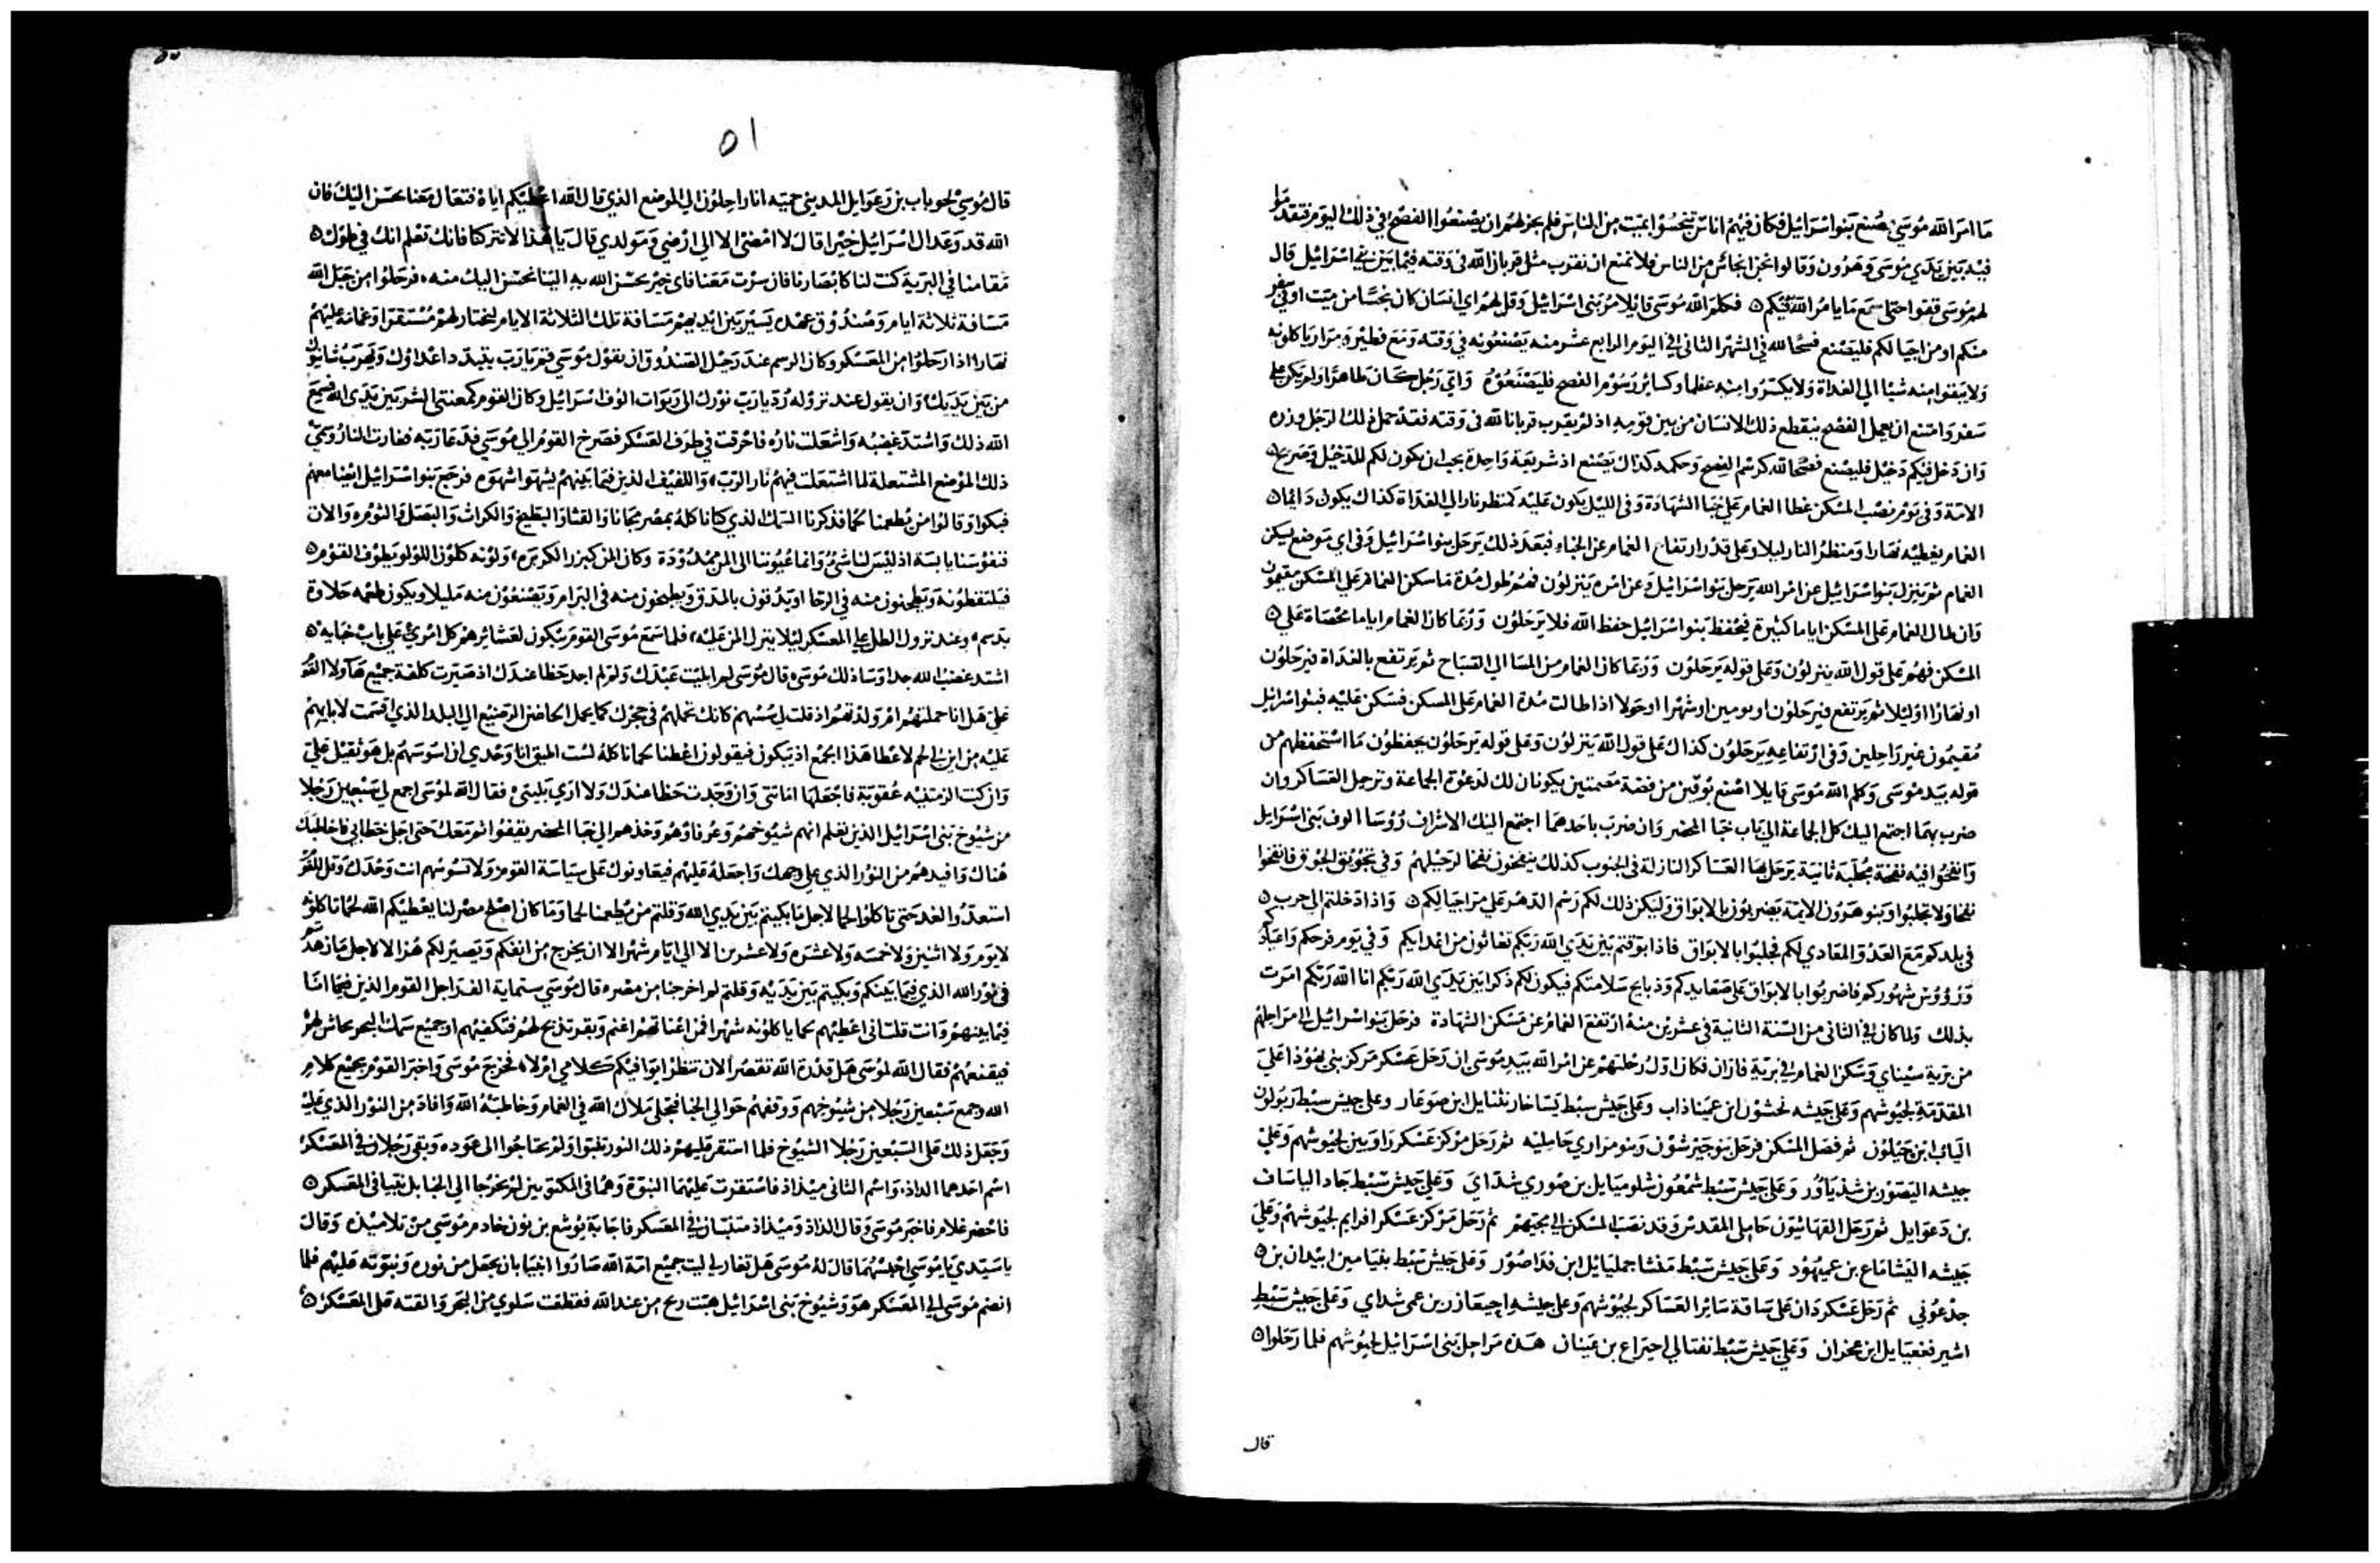 ما امر الله موسى يصنع بنو اسرائيل فكان فيهم اناس تنجسوا بميت من الناس فلم يجز لهم ان يصنعوا الفصح في ذلك اليوم فتقدموا
فيه بين يدي موسى وهرون وقالوا نحن انجاس من الناس فلا نمنع ان نقرب مثل قربان الله في وقته فيما بين بني اسرائيل قال
لهم موسى قفوا حتى اسمع ما يامر الله فيكم ٥ فكلم الله موسى قايلا مر بني اسرائيل وقل لهم اي انسان كان نجسا من ميت او في سفر
منكم او من اجيالكم فليصنع فسحا لله في الشهر الثاني في اليوم الرابع عشر منه يصنعونه في وقته ومع فطير ومرار ياكلونه
ولا يبقوا منه شيا الى الغداة ولا يكسروا منه عظما وكسائر رسوم الفصح فليصنعوه واي رجل كان طاهرا ولم يكن على
سفر وامتنع ان يعمل الفصح ينقطع ذلك الانسان من بين قومه اذ لم يقرب قربان الله في وقته فقد حمل ذلك الرجل وزره
وان دخل فيكم دخيل فليصنع فسحا لله كرسم الفصح وحكمه كذاك يصنع اذ شريعة واحدة يجب ان يكون لكم للدخيل وصريح
الامة وفي يوم نصب المسكن غطا الغمام على خبا الشهادة وفي الليل يكون عليه كمنظر نار الى الغداة كذاك يكون دايما ٥
الغمام يغطيه نهارا ومنظر النار ليلا وعلى قدر ارتفاع الغمام عن الخباء فبعد ذلك يرحل بنو اسرائيل وفي اي موضع يسكن
الغمام ثم ينزل بنو اسرائيل عن امر الله يرحل بنو اسرائيل وعن امره ينزلون فهم طول مدة ما سكن الغمام على المسكن مقيمون
وان طال الغمام على المسكن اياما كثيرة فيحفظ بنو اسرائيل حفظ الله فلا يرحلون وربما كان الغمام اياما محصاة على ٥
المسكن فهم على قول الله ينزلون وعلى قوله يرحلون وربما كان الغمام من المسا الى الصباح ثم يرتفع بالغداة فيرحلون
او نهارا او ليلا ثم يرتفع فيرحلون او يومين او شهرا او حولا اذا طالت مدة الغمام على المسكن فسكن عليه فبنو اسرائيل
مقيمون غير راحلين وفي ارتفاعه يرحلون كذاك على قول الله ينزلون وعلى قوله يرحلون يحفظون ما استحفظهم من
قوله بيد موسى وكلم الله موسى قايلا اصنع بوقين من فضة مصمتين يكونان لك لدعوة الجماعة وترحل العساكر وان
ضرب بهما اجتمع اليك كل الجماعة الى باب خبا المحضر وان ضرب باحدهما اجتمع اليك الاشراف رؤسا الوف بني اسرايل
وانفخوا فيه نفخة مجلبة ثانية يرحل بها العساكر النازلة في الجنوب كذلك ينفخون نفخا لرحيلهم وفي تجويق الجوق فانفخوا
نفخا ولا تجلبوا وبنو هرون الايمة يضربون بالابواق وليكن ذلك لكم رسم الدهر على مر اجيالكم ٥ واذا دخلتم الى حرب ٥
في بلدكم مع العدو المعادي لكم فجلبوا بالابواق فاذا بوقتم بين يدي الله ربكم تغاثون من اعدايكم وفي يوم فرحكم واعيادكم
ورؤوس شهوركم فاضربوا بالابواق على صعايدكم وذبايح سلامتكم فيكون لكم ذكرا بين يدي الله ربكم انا الله ربكم امرت
بذلك ولما كان في الثاني من السنة الثانية في عشرين منه ارتفع الغمام عن مسكن الشهادة فرحل بنو اسرائيل الى مراحلهم
من برية سيناي وسكن الغمام في برية فاران فكان اول رحلتهم عن امر الله بيد موسى ان رحل عسكر مركز بني يهوذا على
المقدمة لجيوشهم وعلى جيشه نحشون ابن عميناذاب وعلى جيش سبط يساخار نثنايل ابن صوعار وعلى جيش سبط زبولون
الياب ابن حيلون ثم فصل المسكن فرحل بنو جيرشون وبنو مراري حامليه ثم رحل مركز عسكر راوبين لجيوشهم وعلى
جيشه اليصور بن شذياور وعلى جيش سبط شمعون شلوميايل بن صوري شداي وعلى جيش سبط جاد الياساف
بن دعوايل ثم رحل القهاثيون حاملي المقدس وقد نصب المسكن الى مجيهم ثم رحل مركز عسكر افرايم لجيوشهم وعلى
جيشه اليشاماع بن عميهود وعلى جيش سبط منشا جمليايل ابن فداصور وعلى جيش سبط بنيامين ابيدان بن ٥
جدعوني ثم رحل عسكر دان على ساقة سائر العساكر لجيوشهم وعلى جيشه احيعازر بن عمي شداي وعلى جيش سبط
اشير فغعيايل ابن عخران وعلى جيش سبط نفتالي احيراع بن عينان هذه مراحل بني اسرائيل لجيوشهم فلما رحلوا ٥
قال
٥١
قال موسى لحوباب بن رعوايل المديني حميه انا راحلون الى الموضع الذي قال الله اعطيكم اياه فتعال معنا نحسن اليك فان
الله قد وعد ال اسرائيل خيرا قال لا امضي الا الى ارضي ومولدي قال يا هذا لا تتركنا فانك تعلم انك في طول ٥
مقامنا في البرية كنت لنا كابصارنا فان سرت معنا فاي خير يحسن الله به الينا نحسن اليك منه فرحلوا من جبل الله
مسافة ثلاثة ايام وصندوق عهده يسير بين ايديهم مسافة تلك الثلاثة الايام ليختار لهم مستقرا وغمامه عليهم
نهارا اذا رحلوا من المعسكر وكان الرسم عند رحيل الصندوق ان يقول موسى قم يا رب يتبدد اعداؤك ويهرب شانوك
من بين يديك وان يقول عند نزوله رد يا رب نورك الى ربوات الوف اسرائيل وكان القوم كمعنتي الشر بين يدي الله فسمع
الله ذلك واشتد غضبه واشعلت ناره فاحرقت في طرف العسكر فصرخ القوم الى موسى فدعا ربه فغارت النار وسمى
ذلك الموضع المشتعلة لما اشتعلت فيهم نار الرب واللفيف الذين فيما بينهم اشتهوا شهوة فرجع بنو اسرائيل ايضا معهم
فبكوا وقالوا من يطعمنا لحما فذكرنا السمك الذي كنا ناكله بمصر مجانا والقثا والبطيخ والكراث والبصل والثوم والان
فنفوسنا يابسة اذ ليس لنا شي وانما عيوننا الى المن ممدودة وكان المن كبزر الكزبره ولونه كلون اللولو يطوف القوم ٥
فيلتقطونه ويطحنون منه في الرحا او يدقون بالمدق ويطبخون منه في البرام ويصنعون منه مليلا ويكون طعمه حلاوة
بدسم وعند نزول الطل على المعسكر ليلا ينزل المن عليه فلما سمع موسى القوم يبكون لعشائرهم كل امرئ على باب خبايه ٥
اشتد غضب الله جدا وسا ذلك موسى قال موسى لم ابليت عبدك ولم لم اجد حظا عندك اذ صيرت كلفة جميع هاولا القوم
علي هل انا حملتهم ام ولدتهم اذ قلت لي سسهم كانك تحملهم في حجرك كما يحمل الحاضن الرضيع الى البلد الذي اقسمت لابايهم
عليه من اين لي لحم لاعطا هذا الجمع اذ يبكون فيقولون اعطنا لحما ناكله لست اطيق انا وحدي ان اسوسهم بل هو ثقيل علي
وان كنت الزمتنيه عقوبة فاجعلها اماتتي وان وجدت حظا عندك ولا ارى بليتي فقال الله لموسى اجمع لي سبعين رجلا
من شيوخ بني اسرائيل الذين تعلم انهم شيوخهم وعرفاؤهم وخذهم الى خبا المحضر يقفوا ثم معك حتى اجلي خطابي فاخاطبك
هناك وافيدهم من النور الذي على وجهك واجعله عليهم فيعاونوك على سياسة القوم ولا تسوسهم انت وحدك وقل للقوم
استعدوا لغد حتى تاكلوا لحما لاجل ما بكيتم بين يدي الله وقلتم من يطعمنا لحما وما كان اصلح مصر لنا يعطيكم الله لحما تاكلوه
لا يوم ولا اثنين ولا خمسه ولا عشره ولا عشرين الا الى ايام شهر الا ان يخرج من انفكم ويصير لكم هزالا لاجل ما زهدتم
في نور الله الذي فيما بينكم وبكيتم بين يديه وقلتم لم اخرجنا من مصر قال موسى ستماية الف راجل القوم الذين فيما انا
فيما بينهم وانت قلت اني اعطيهم لحما ياكلونه شهرا فمن اغناتهم اغنم وبقر تذبح لهم فتكفيهم او جميع سمك البحر يحاش لهم
فيقنعهم فقال الله لموسى هل قدرة الله تقصر الان تنظر ايوافيكم كلامي ام لا فخرج موسى واخبر القوم بجميع كلام
الله وجمع سبعين رجلا من شيوخهم ووقفهم حوالي الخبا فتجلى ملاك الله في الغمام وخاطبه الله وافاد من النور الذي عليه
وجعل ذلك على السبعين رجلا الشيوخ فلما استقر عليهم ذلك النور تنبوا ولم يحتاجوا الى عوده وبقى رجلان في المعسكر
اسم احدهما الداذ واسم الثاني ميذاذ فاستقرت عليهما النبوة وهما في المكتوبين لم يخرجا الى الخبا بل تنبيا في المعسكر ٥
فاحضر غلام فاخبر موسى وقال الداذ وميذاذ متنبيان في المعسكر فاجابه يوشع بن نون خادم موسى من تلاميذه وقال
يا سيدي يا موسى احبسهما قال له موسى هل تغار لي ليت جميع امة الله صاروا انبيا بان يجعل من نوره ونبوته عليهم فلما
انضم موسى الى المعسكر هو وشيوخ بني اسرائيل هبت ريح من عند الله فقطفت سلوى من البحر والقته على المعسكر ٥